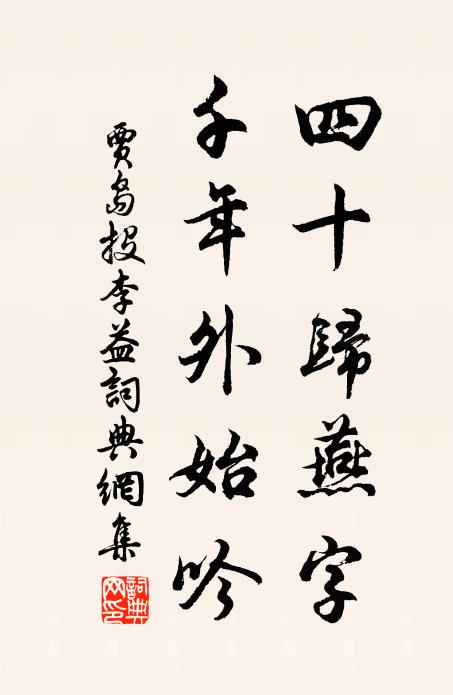 四十歸燕字
千年外始吟
賈島投李益詞典網集
詞典网印